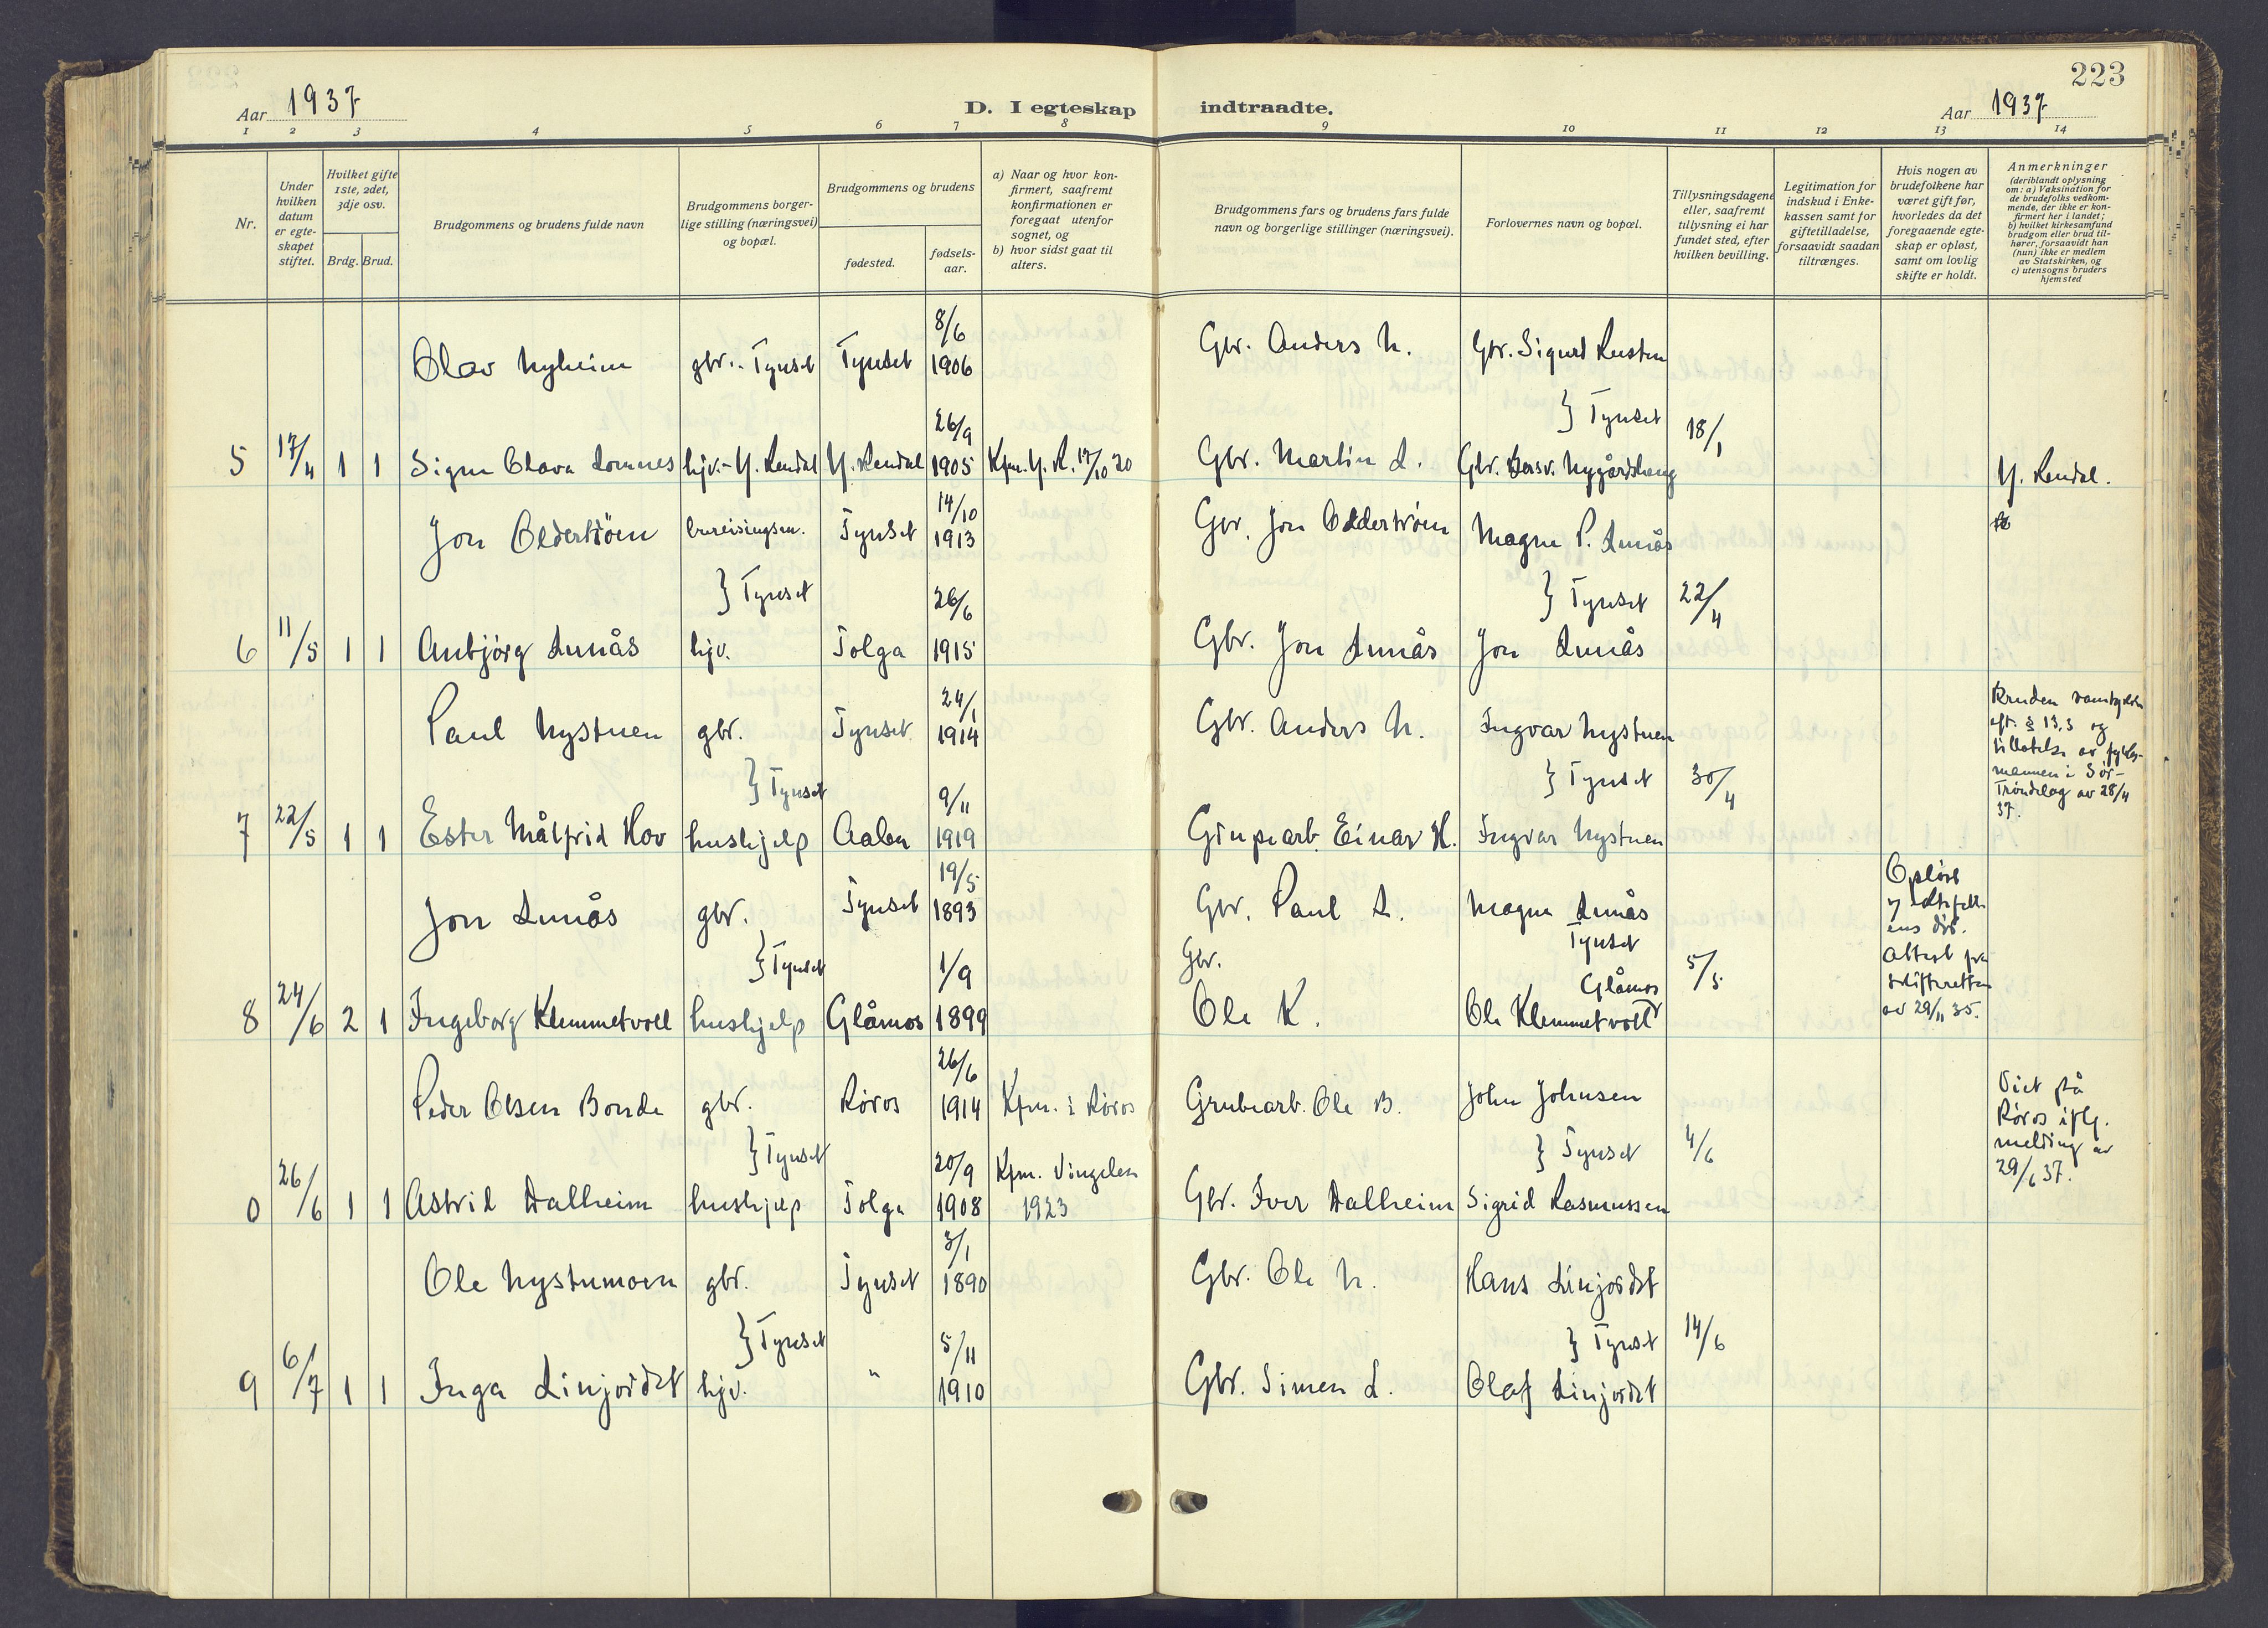 223
Aar 1937
D. I egteskap indtraadte.
Aar 1937
1 2 3 4 5 6 7 8 9 10 11 12 13 14
Nr.
Under hvilken datum er egteskapet stiftet.
Hvilket gifte 1ste, 2det, 3dje osv.
Brdg. Brud.
Brudgommens og brudens fulde navn
Brudgommens borgerlige stilling (næringsvei) og bopæl.
Brudgommens og brudens
fødested.
fødselsaar.
a) Naar og hvor konfirmert, saafremt konfirmationen er foregaat utenfor sognet, og
b) hvor sidst gaat til alters.
Brudgommens fars og brudens fars fulde navn og borgerlige stillinger (næringsvei).
Forlovernes navn og bopæl.
Tillysningsdagene eller, saafremt tillysning ei har fundet sted, efter hvilken bevilling.
Legitimation for indskud i Enkekassen samt for giftetilladelse, forsaavidt saadan tiltrænges.
Hvis nogen av brudefolkene har været gift før, hvorledes da det foregaaende egteskap er opløst, samt om lovlig skifte er holdt.
Anmerkninger
(deriblandt oplysning om: a) Vaksination for de brudefolks vedkommende, der ikke er konfirmert her i landet;
b) hvilket kirkesamfund brudgom eller brud tilhører, forsaavidt han (hun) ikke er medlem av Statskirken, og
c) utensogns bruders hjemsted
8/6
Olav Nyheim gbr. Tynset Tynset 1906 Gbr. Anders N. Gbr. Sigurd Rusten
26/9 } Tynset 18/1
5 17/4 1 1 Signe Olava Lomnes hjv. - Y. Rendal Y. Rendal 1905 Kfm. Y. R. 17/10 20 Gbr. Martin L. Gbr. Bersv. Nygårdshaug Y. Rendal.
14/10
Jon Oldertrøen bureisingsm. Tynset 1913 Gbr. Jon Oldertrøen Magne P. Lunås
} Tynset 26/6 } Tynset 22/4
6 11/5 1 1 Anbjørg Lunås hjv. Tolga 1915 Gbr. Jon Lunås Jon Lunås
24/1
Paul Nystuen gbr. Tynset 1914 Gbr. Anders N. Ingvar Nystuen
} Tynset 9/11 } Tynset 30/4
7 22/5 1 1 Ester Målfrid Hov hushjelp Aalen 1919 Einar H. Ingvar Nystuen
Bruden samtykke
eft. § 13,3 og
tillatelse av fylkes-
mannen i Sør-
Trøndelag av 28/4
37.
19/5
Jon Lunås gbr. Tynset 1893 Gbr. Paul L. Magne Lunås
Tynset
} Tynset 1/9 Gbr. Glåmos 5/5
8 24/6 2 1 Ingeborg Klemmetvoll hushjelp Glåmos 1899 Ole K. Ole Klemmetvoll
Opløst
v/ ektefell
ens død.
Attest fra
skifteretten
av 29/11 35.
26/6
Peder Olsen Bonde gbr. Røros 1914 Kfm. i Røros Grubearb. Ole B. John Johnsen
} Tynset 20/9 Kfm. Vingelen } Tynset 4/6
0 26/6 1 1 Astrid Dalheim hushjelp Tolga 1908 1923 Gbr. Iver Dalheim Sigrid Rasmussen
Viet på
Røros iflg.
melding av
29/6 37.
3/1
Ole Nystumoen gbr. Tynset 1890 Gbr. Ole N. Hans Linjordet
} Tynset 5/11 } Tynset 14/6
9 6/7 1 1 Inga Linjordet hjv. " 1910 Gbr. Simen L. Olaf Linjordet